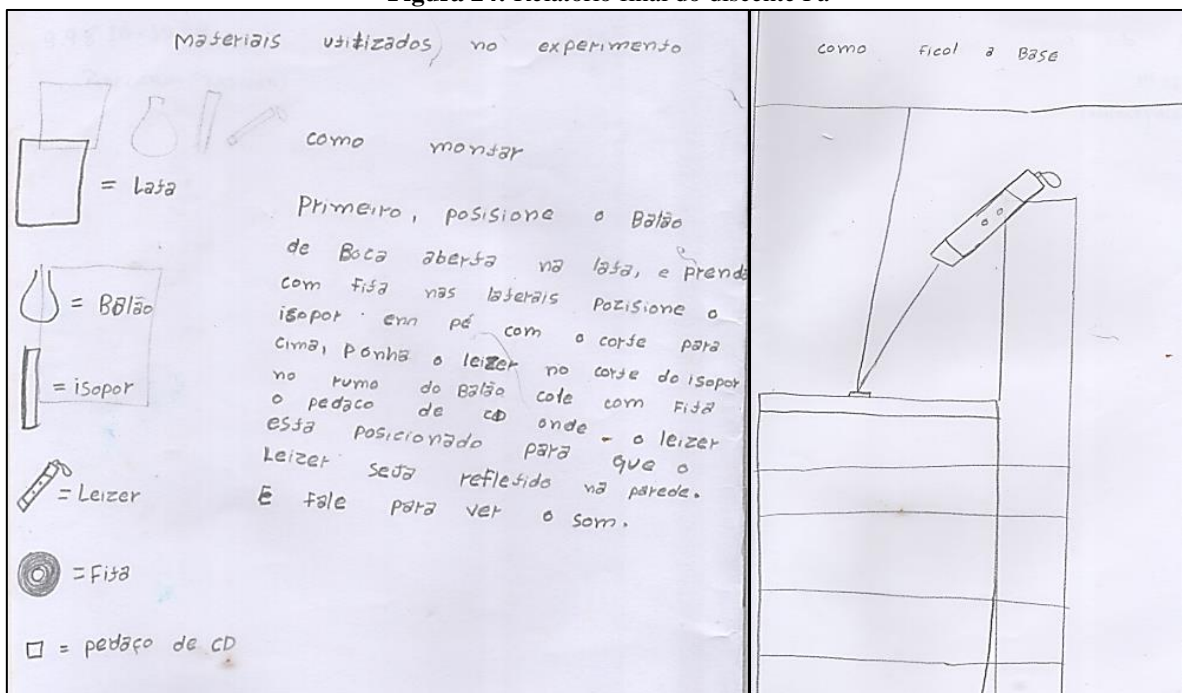 Materiais utilizados no experimento
= Lata
= Balão
= isopor
= Leizer
= Fita
= pedaço de CD
como montar
Primeiro, posisione o Balão
de Boca aberta na lata, e prenda
com Fita nas laterais Pozisione o
isopor em pé com o corte para
cima, Ponha o leizer no corte do isopor
no rumo do Balão cole com Fita
o pedaco de CD onde o leizer
esta posicionado para que o
Leizer seja refletido na parede.
E fale para ver o som.
como ficol a Base